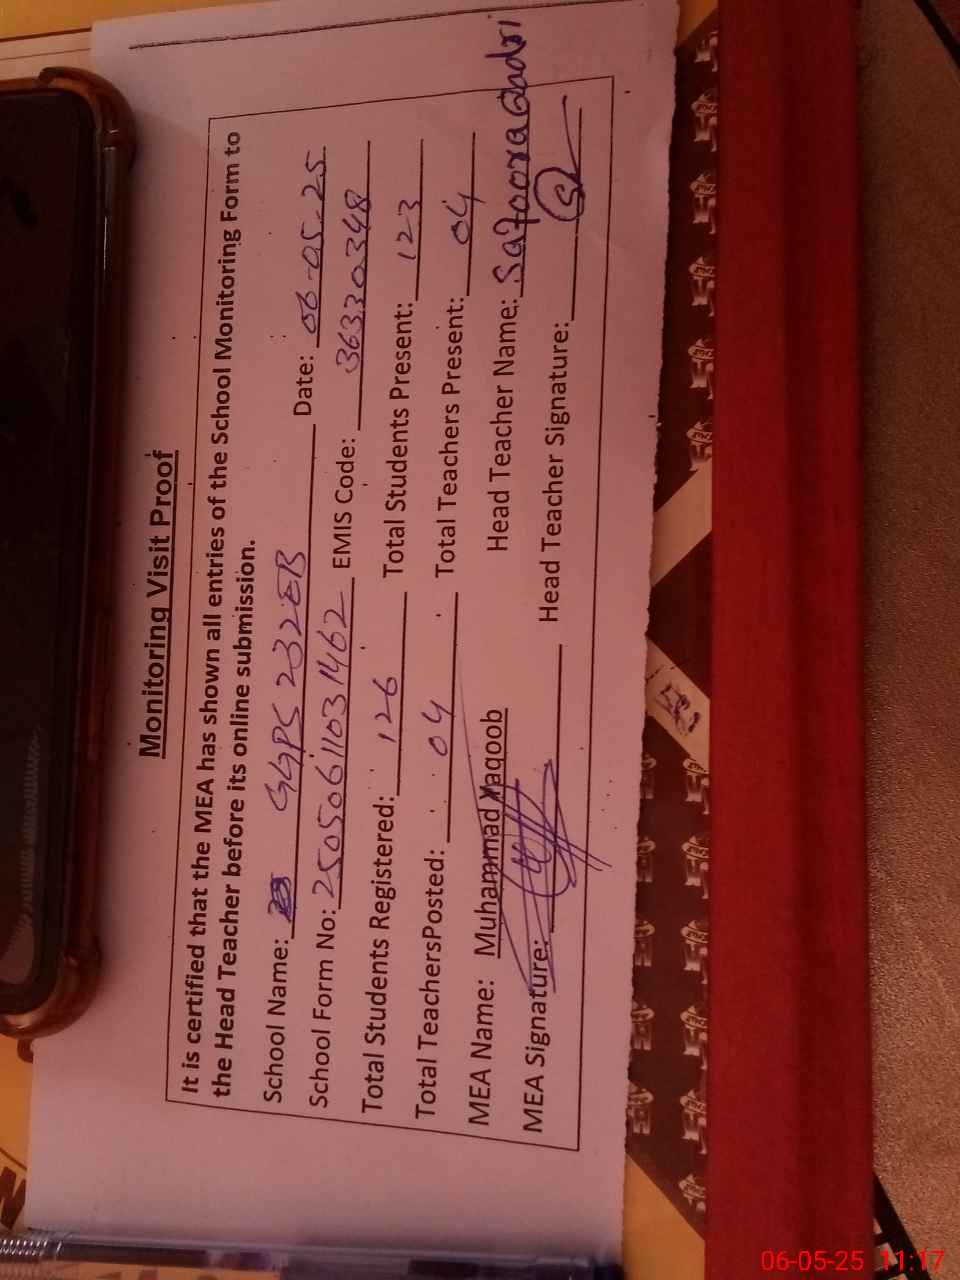 Monitoring Visit Proof
It is certified that the MEA has shown all entries of the School Monitoring Form to
the Head Teacher before its online submission.
School Name: GGPS 232EB Date: 06-05-25
School Form No: 25050611031462 EMIS Code: 36330348
Total Students Registered: 126 Total Students Present: 123
Total TeachersPosted: 04 Total Teachers Present: 04
MEA Name: Muhammad Yaqoob Head Teacher Name: Safoora Qadri
MEA Signature: Head Teacher Signature:
06-05-25 11:17